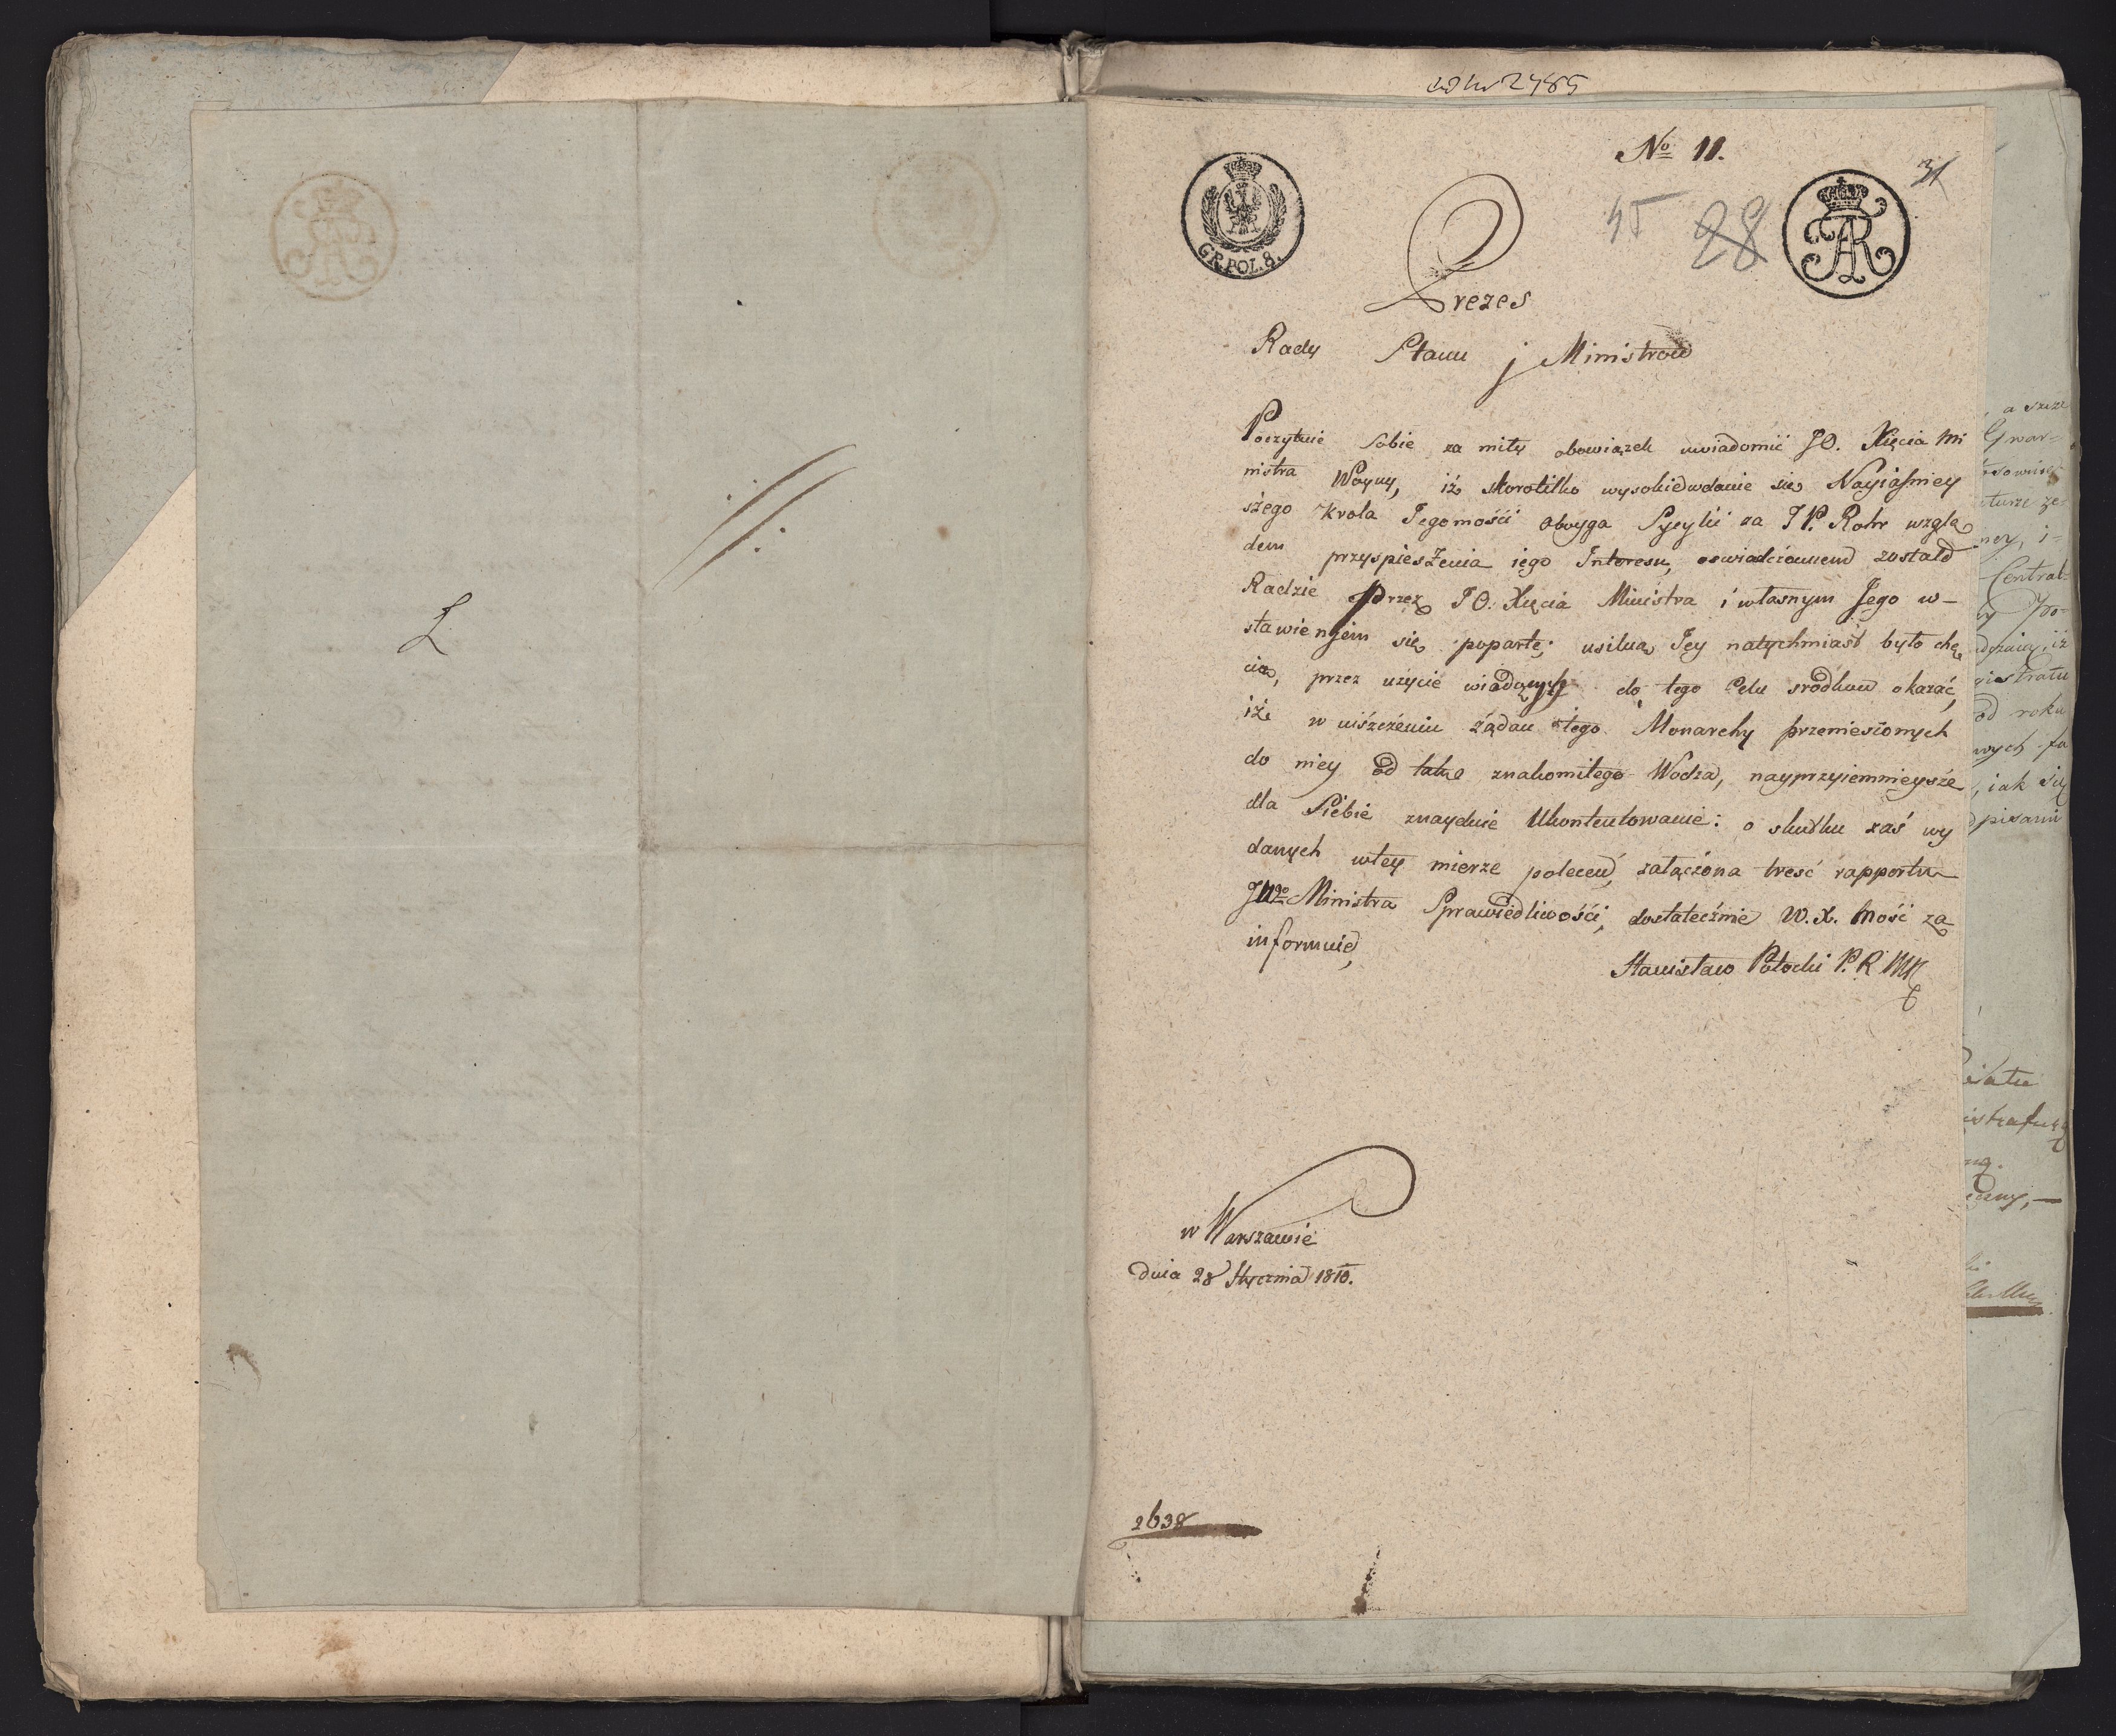 2485
No 11.
31
GR.POL.8.
AR
45 28
Prezes
Rady Stanu j Ministrow
Poczytuie sobie za miły obowiązek uwiadomić JO. Xięcia Mi
nistra Woyny, iż skorotilko wysokie wdanie się Nayiaśniey
szego Krola Jegomości oboyga Sycylii za JP. Rohr wzglę
dem przyspieszenia iego Interesu, oswiadczonem zostało
Radzie przez JO. Xięcia Ministra i własnym Jego w-
stawieniem się poparte; usilną Jey natychmiast było chę
cią, przez użycie wiadomych do tego Celu srodkow okazać,
iże w uiszczeniu żądań tego Monarchy przeniesionych
do niey od tak znakomitego Wodza, nayprzyiemnieysze
dla Siebie znayduie Ukontentowanie: o skutku zaś wy
danych wtey mierze poleceń, załączona treść rapportu
JWgo Ministra Sprawiedliwości, dostatecznie W.X. Mość za
informuie,
Stanisław Potocki P. R
w Warszawie
dnia 28 Stycznia 1810.
2638